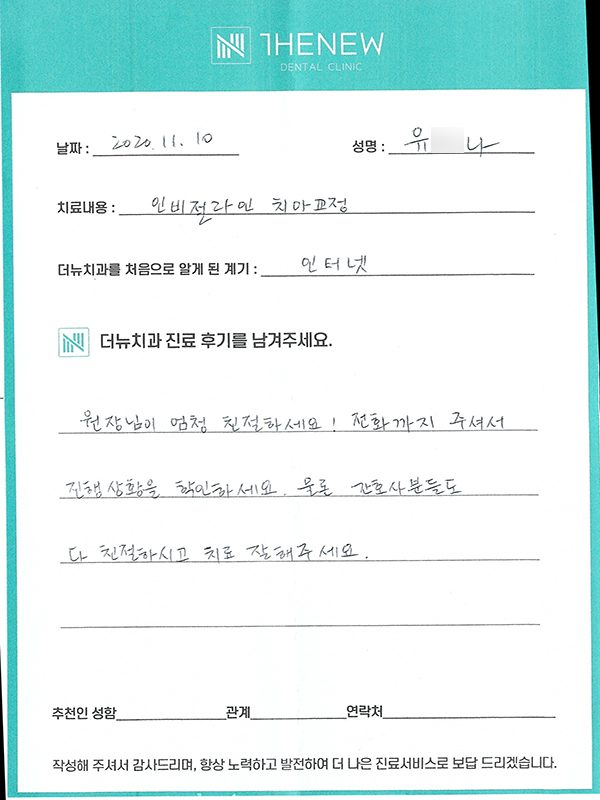 THENEW
DENTAL CLINIC
날짜 : 2020. 11. 10 성명 : 유 나
치료내용 : 인비절라인 치아교정
더뉴치과를 처음으로 알게 된 계기 : 인터넷
더뉴치과 진료 후기를 남겨주세요.
원장님이 엄청 친절하세요! 전화까지 주셔서
진행상황을 확인하세요. 물론 간호사분들도
다 친절하시고 치료 잘해주세요.
추천인 성함 관계 연락처
작성해 주셔서 감사드리며, 항상 노력하고 발전하여 더 나은 진료서비스로 보답 드리겠습니다.